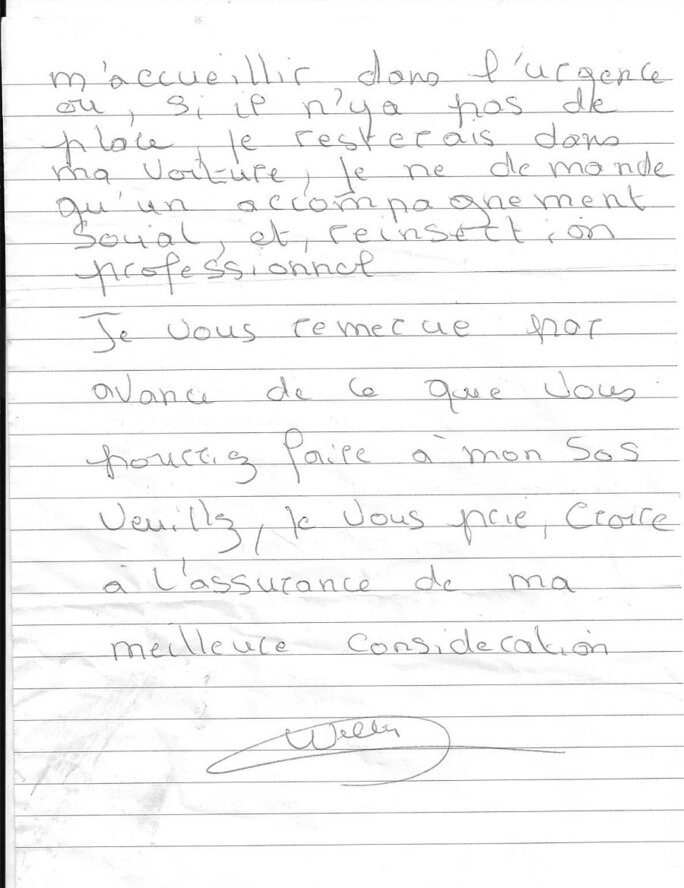 m'accueillir dans l'urgence
ou, si il n'ya pas de
place, je resterais dans
ma voiture, je ne demande
qu'un accompagnement
social, et, reinsertion
professionnel
Je vous remercie par
avance de ce que vous
pourriez faire à mon SOS
Veuillz, je vous prie, croire
à l'assurance de ma
meilleure consideration
Willy